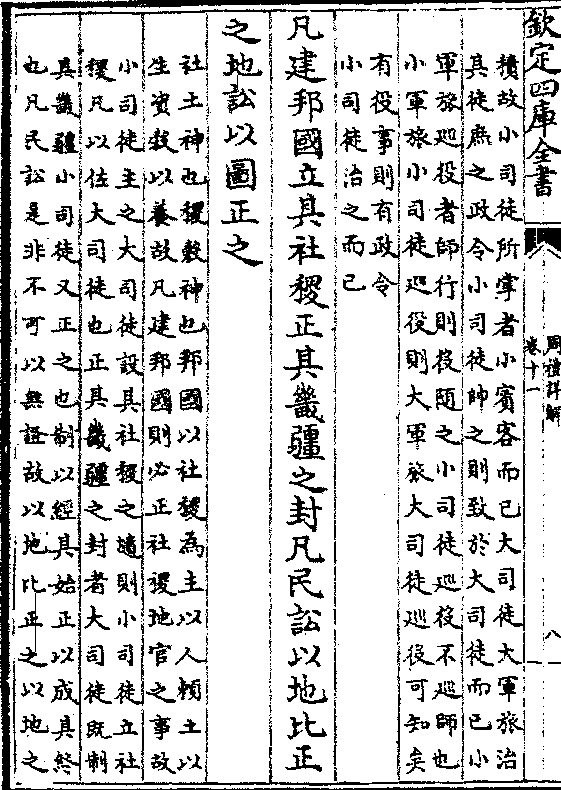 欽定四庫全書
周禮詳解
卷十一
八
積故小司徒所掌者小賓客而已大司徒大軍旅治
其徒庶之政令小司徒帥之則致於大司徒而已小
軍旅巡役者師行則役隨之小司徒巡役不巡師也
小軍旅小司徒巡役則大軍旅大司徒巡役可知矣
有役事則有政令
小司徒治之而已
凡建邦國立其社稷正其畿疆之封凡民訟以地比正
之地訟以圖正之
社土神也稷穀神也邦國以社稷為主以人賴土以
生資穀以養故凡建邦國則必正社稷地官之事故
小司徒主之大司徒設其社稷之壝則小司徒立社
稷凡以佐大司徒也正其畿疆之封者大司徒既制
其畿疆小司徒又正之也制以經其始正以成其終
也凡民訟是非不可以無證故以地比正之以地之